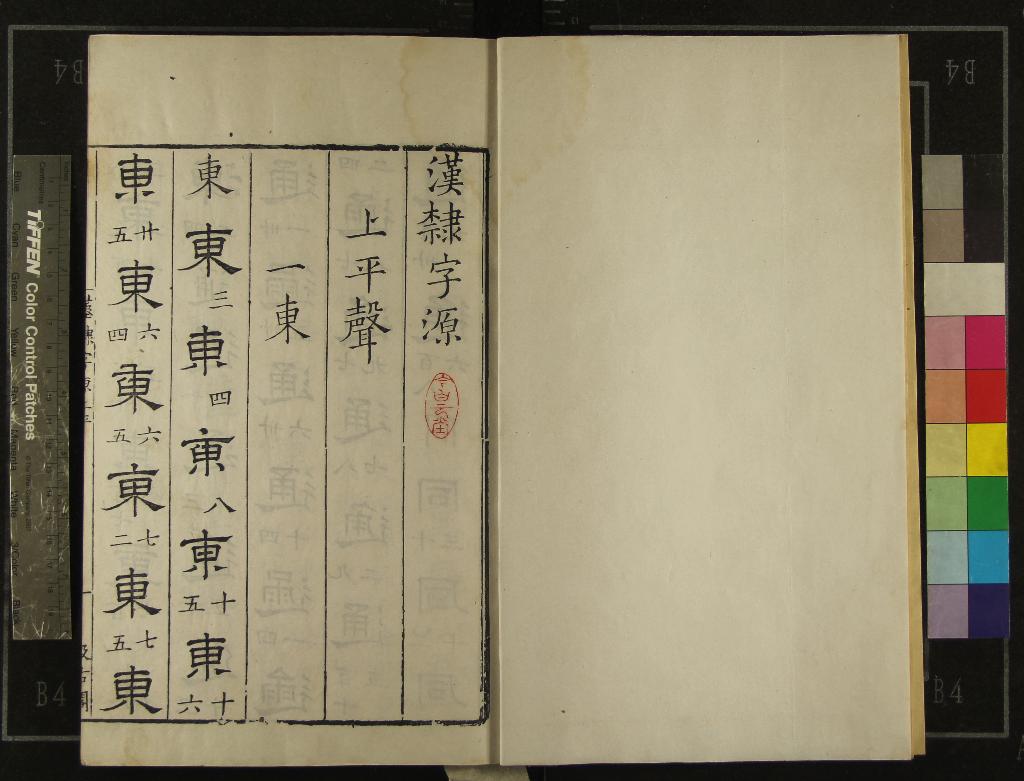 漢隸字源
上平聲
一東
東東三東四東八東十五東十六
東廿五東六四東六五東七二東七五東
TIFFEN Color Control Patches
Blue
Cyan
Green
Yellow
Red
Magenta
White
3/Color
Black
B4
B4
B4
B4